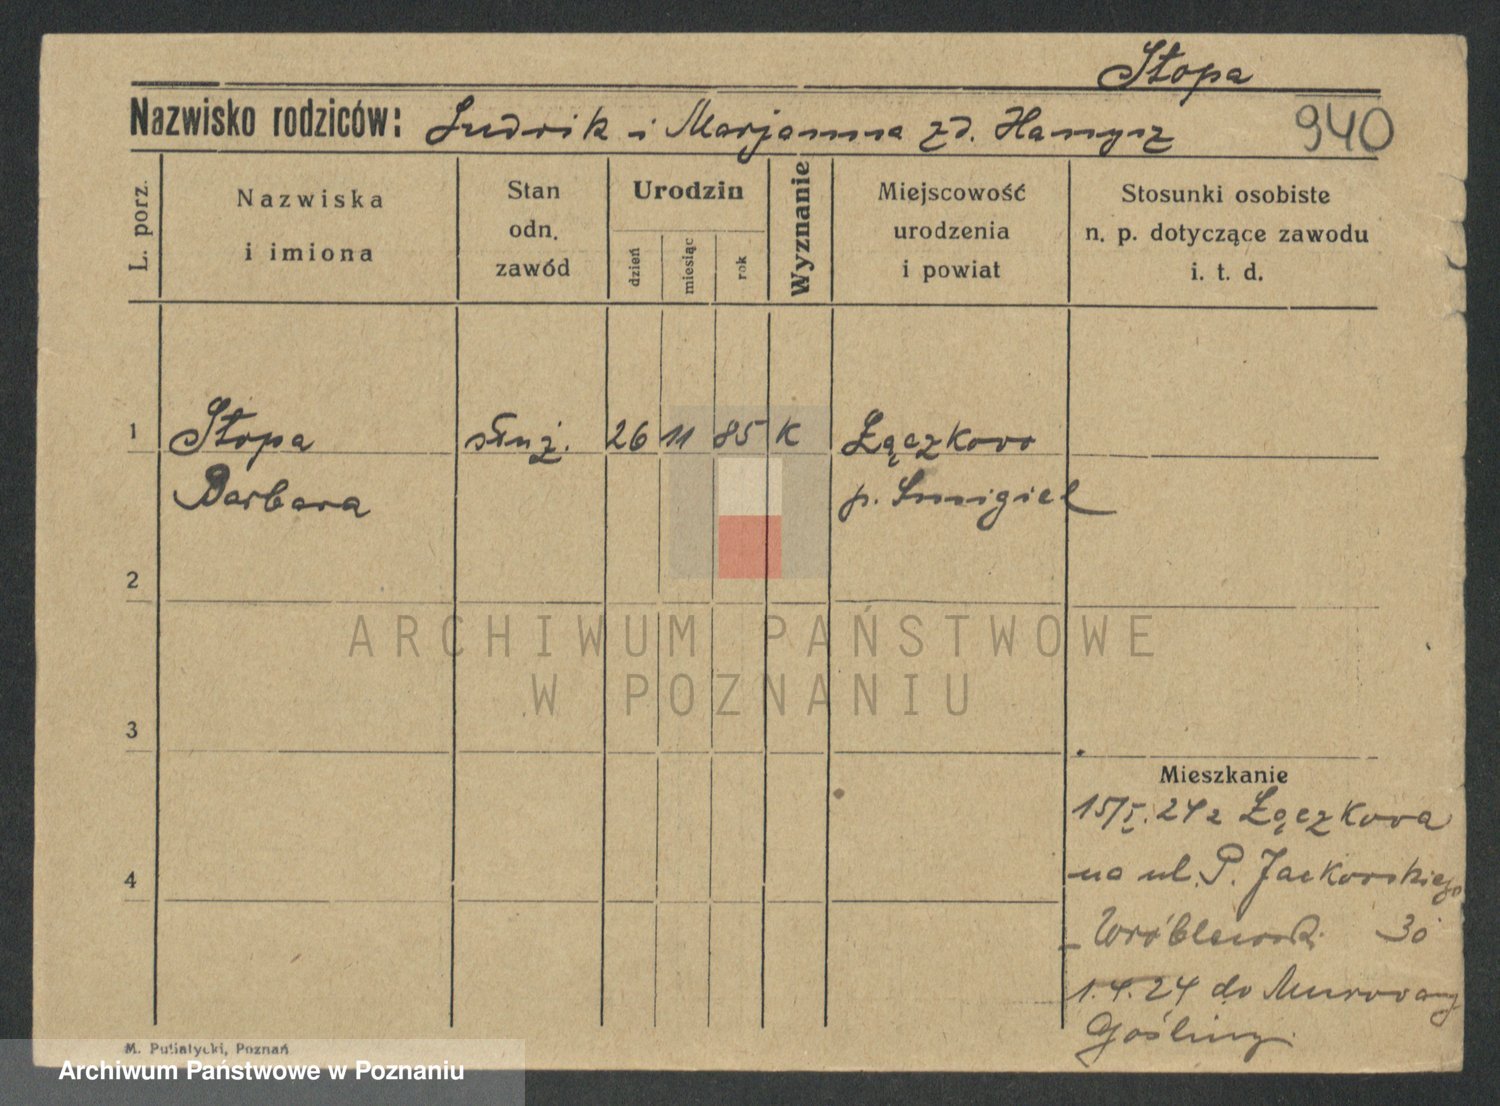 Stopa
Nazwisko rodziców: Ludwik i Marjanna zd. Hamysz
940
L. porz.
Nazwiska
i imiona
Stan
odn.
zawód
Urodzin
dzień
miesiąc
rok
Wyznanie
Miejscowość
urodzenia
i powiat
Stosunki osobiste
n. p. dotyczące zawodu
i. t. d.
1 Stopa służ. 26 11 85 K Łączkowo
Barbara p. Smigiel
2
ARCHIWUM PAŃSTWOWE
W POZNANIU
3
Mieszkanie
15/I. 24 z Łączkowa
4
na ul. P. Jackowskiego
Wróblewski 30
1.4.24 do Murowany
Gośliny.
M. Putiatycki, Poznań
Archiwum Państwowe w Poznaniu